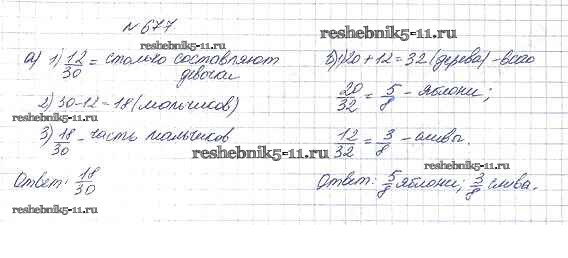 № 677
reshebnik5-11.ru
reshebnik5-11.ru
а) 1) 12/30 = столько составляют
девочки
2) 30-12=18 (мальчиков)
3) 18/30 - часть мальчиков
Ответ: 18/30
reshebnik5-11.ru
reshebnik5-11.ru
б) 1) 20+12=32 (дерева) - всего
20/32 = 5/8 - яблони;
12/32 = 3/8 - сливы.
reshebnik5-11.ru
Ответ: 5/8 яблони; 3/8 слива.